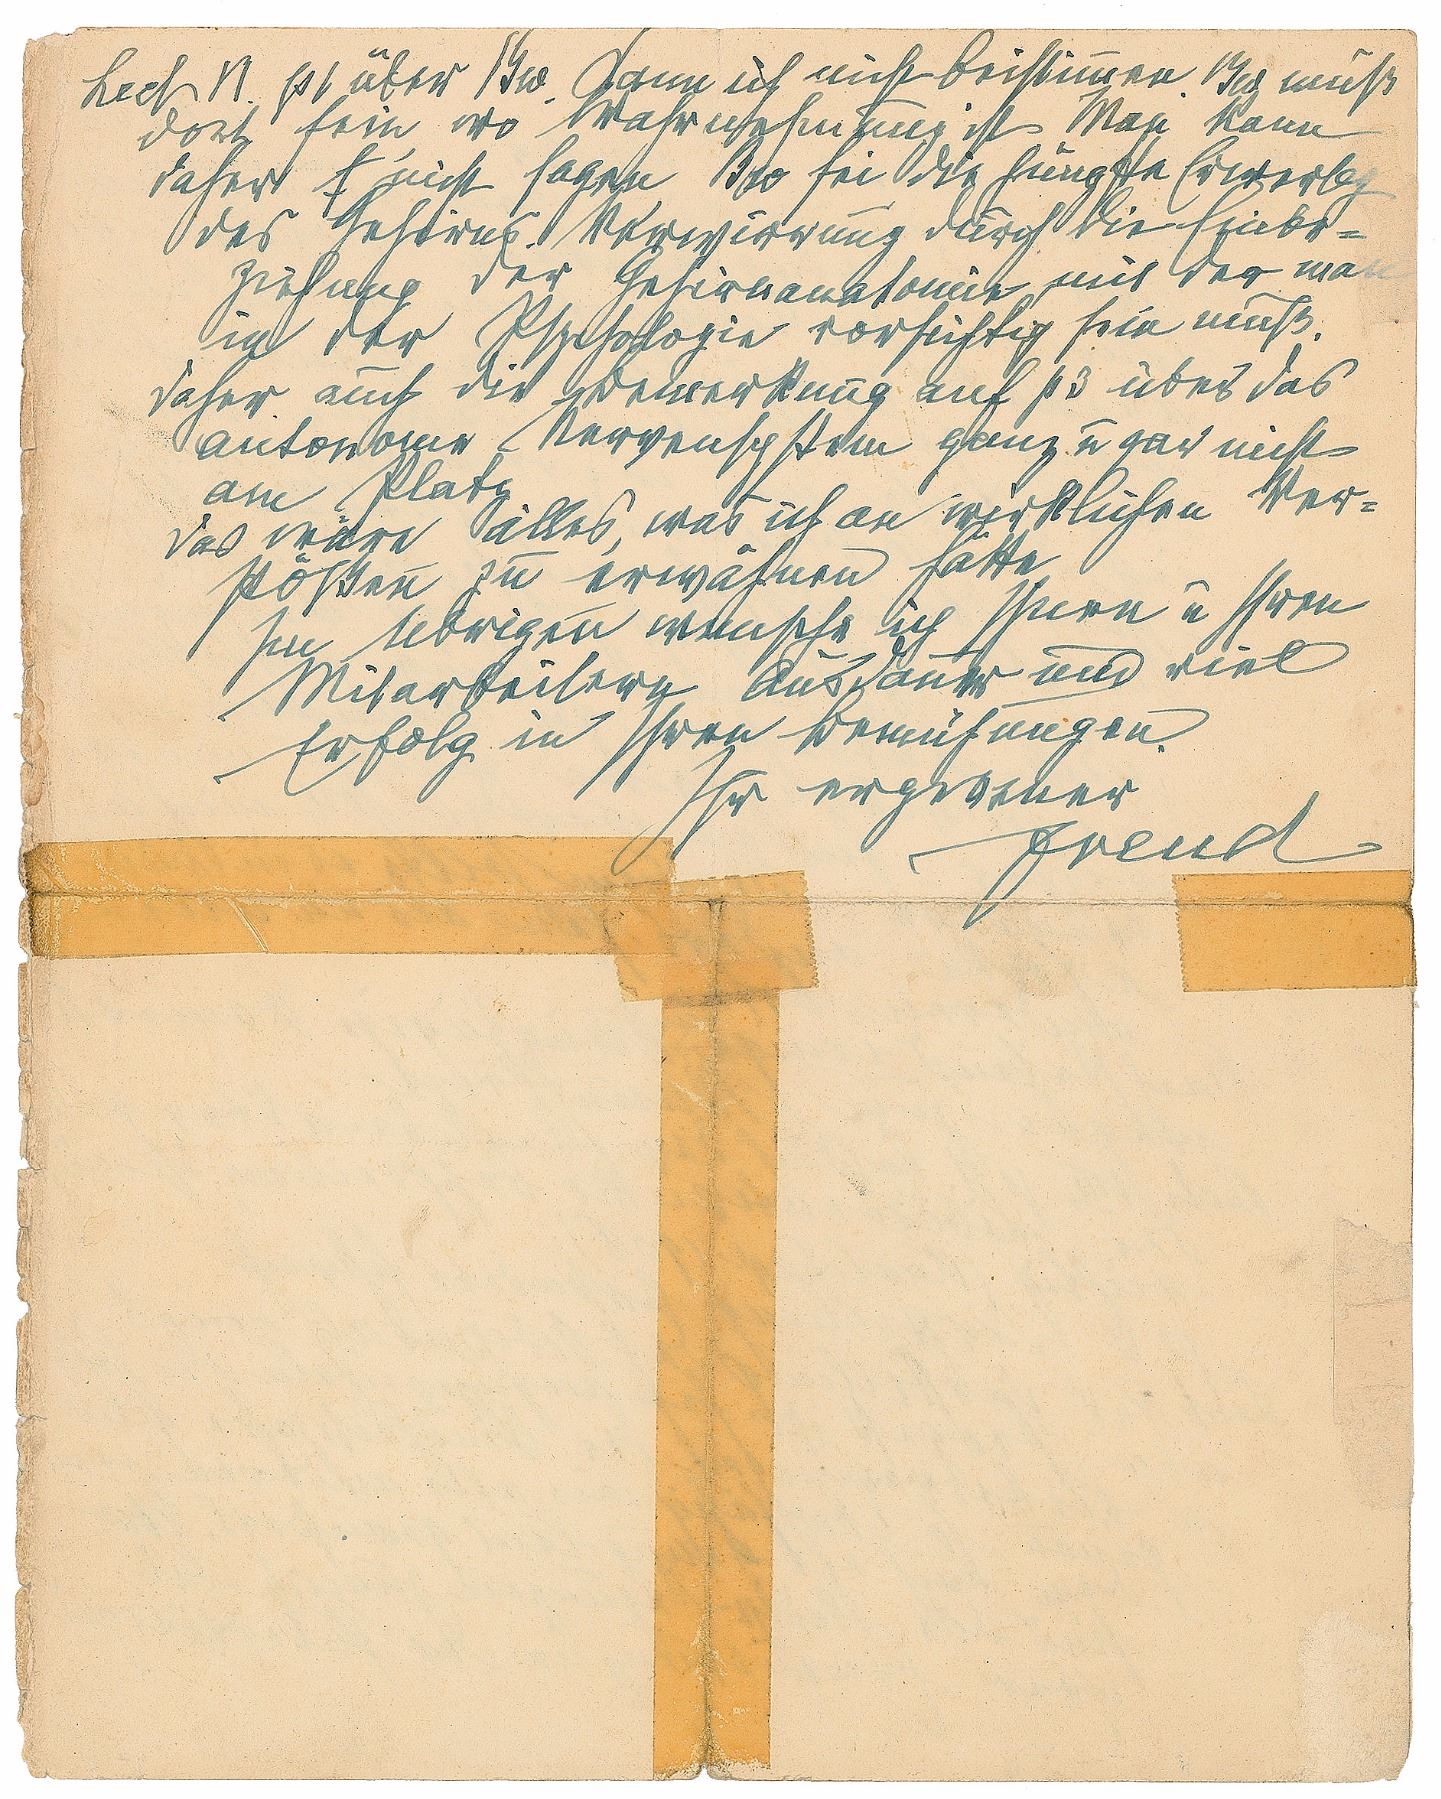 Lect VI. p1 über Bw. Kann ich nicht beistimmen. Bw muß
dort sein, wo Wahrnehmung ist. Man kann
daher nicht sagen Bw sei die jüngste Erwerbg
des Gehirns. Verwirrung durch die Einbe=
ziehung der Gehirnanatomie mit der man
in der Psychologie vorsichtig sein muß.
Daher auch die Bemerkung auf p3 über das
autonome Nervensystem ganz u gar nicht
am Platz
Das wäre alles, was ich an wirklichen Ver=
stößen zu erwähnen hätte
Im Übrigen wünsche ich Ihnen u Ihren
Mitarbeitern Ausdauer und viel
Erfolg in Ihren Bemühungen.
Ihr ergebener
Freud